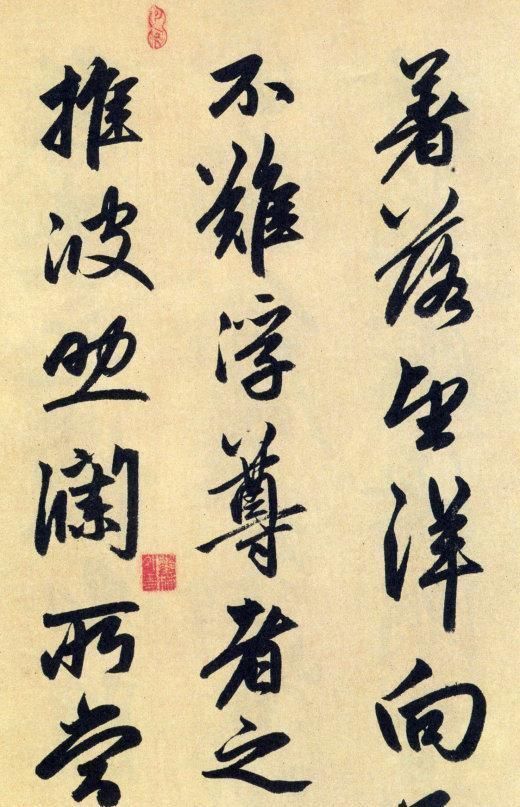 著落望洋向
不難浮尊者之
推波助瀾所